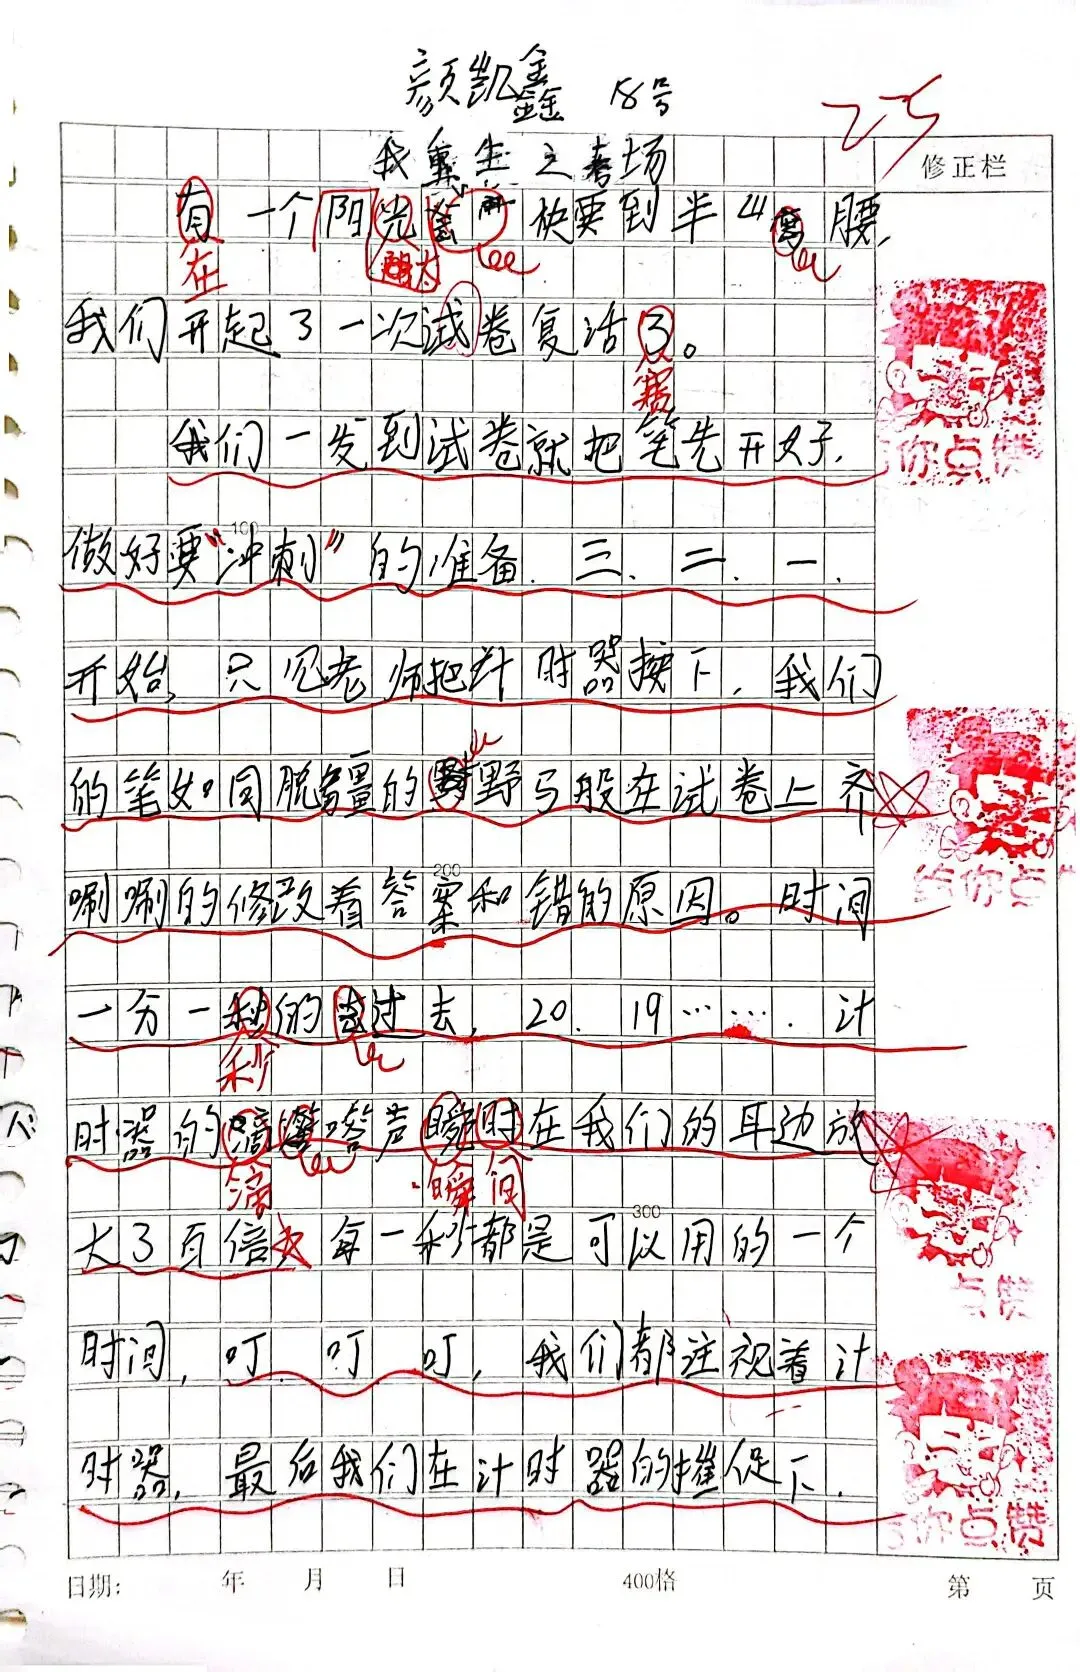 颜凯鑫 18号
25
我重生之考场
修正栏
有一个阳光 快要到半山腰,
在 太
我们开起了一次试卷复活了。
赛
我们一发到试卷就把笔先开好,
100
做好要“冲刺”的准备.三、二、一.
开始,只见老师把计时器按下,我们
的笔如同脱缰的野马般在试卷上齐
200
唰唰的修改着答案和错的原因。时间
一分一秒的过去,20.19…….计
秒
时器的滴嗒声瞬时在我们的耳边放
滴 瞬间
300
大了百倍 每一秒都是可以用的一个
时间,叮.叮.叮,我们都注视着计
时器,最后我们在计时器的摧促下.
日期: 年 月 日 400格 第 页
你点赞
给你点
点赞
你点赞